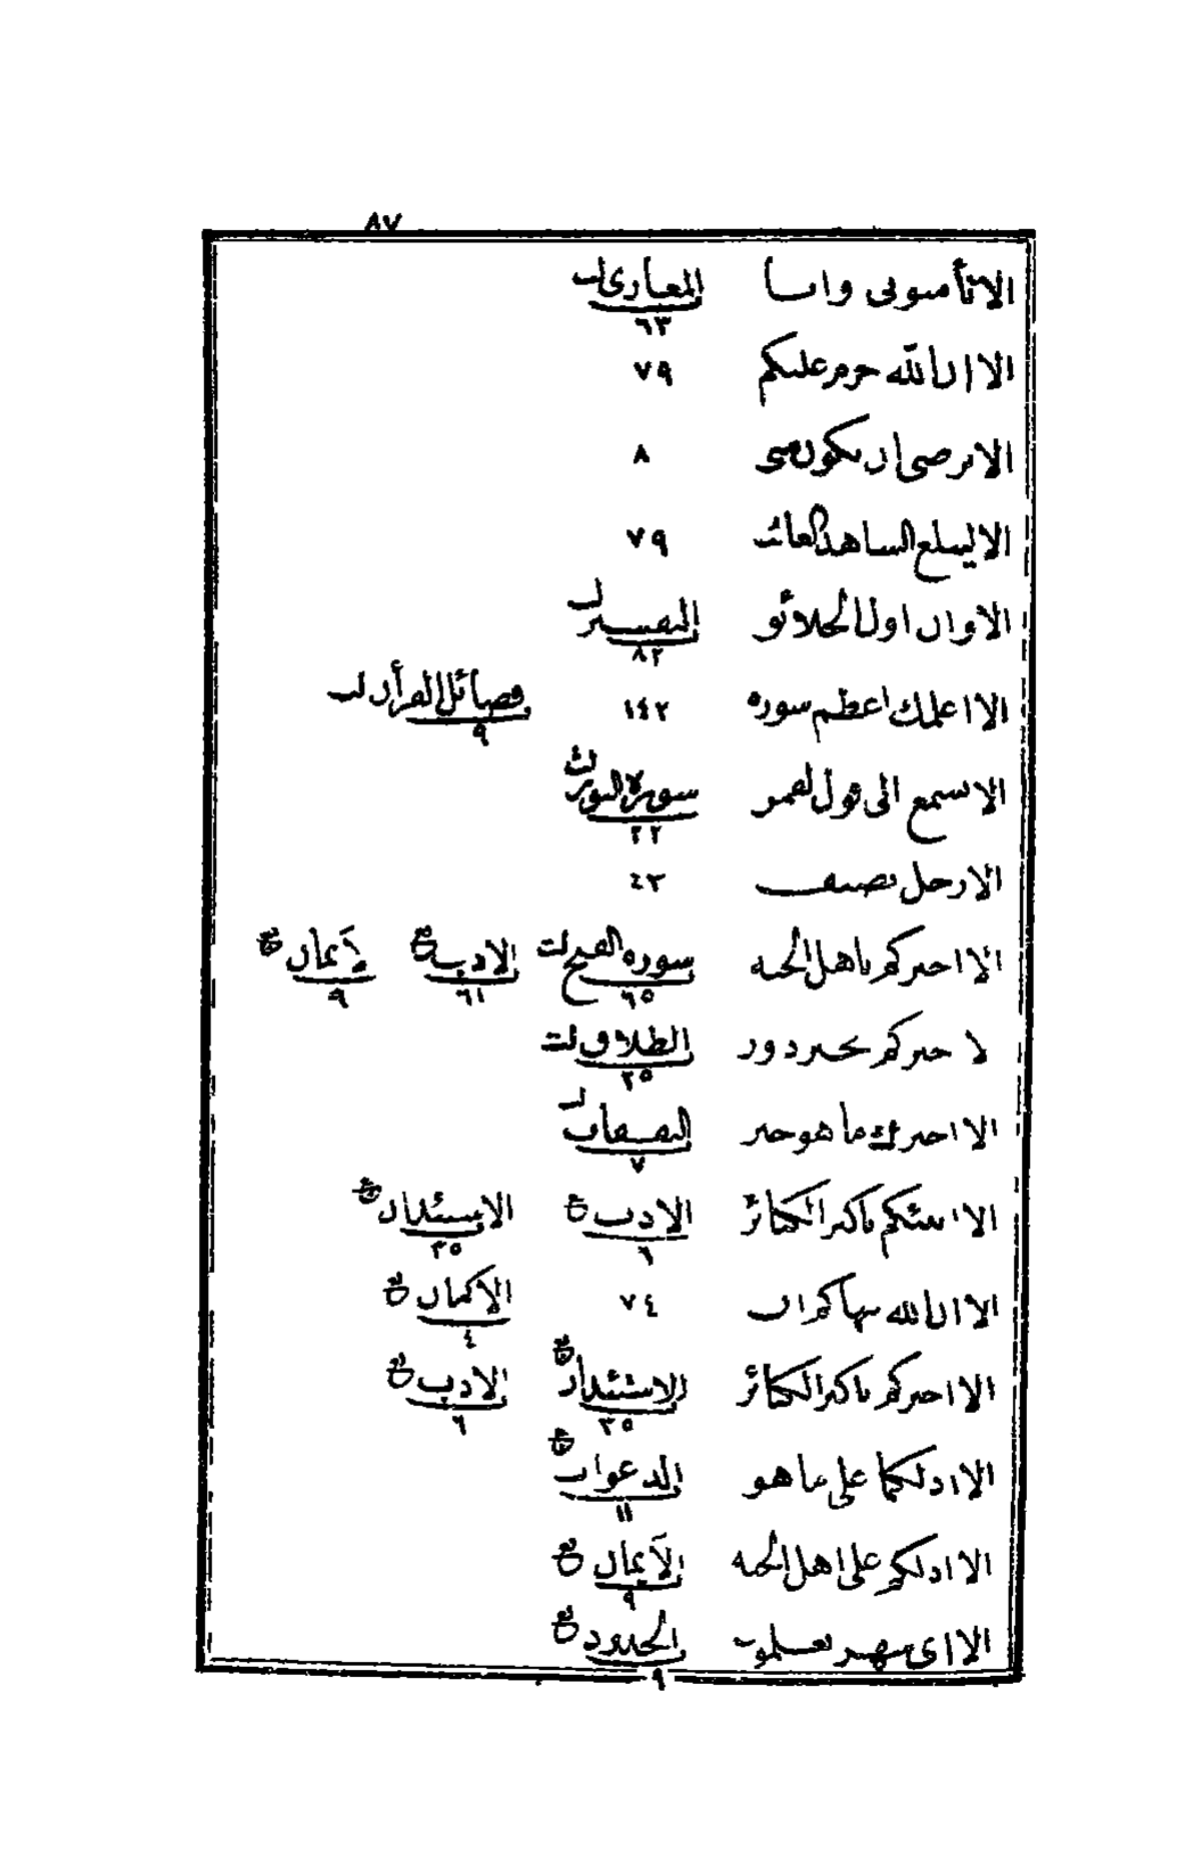 ٨٧
الا تأمنونى وانا المغازى ك ٦٣
الا ان الله حرم عليكم ٧٩
الا ترضى ان تكون منى ٨
الا ليبلغ الشاهد الغائب ٧٩
الا وان اول الخلائق التفسير ك ٨٢
الا اعلمك اعظم سورة ١٤٢ فضائل القرأن ك ٩
الا تسمع الى قول لقمن سورة النور ك ٢٢
الا رجل يضيف ٤٣
الا اخبركم باهل الجنة سورة الفتح ك ٦٥ الادب ع ٦١ لايمان ع ٩
لا خبركم بخير دور الطلاق ك ٢٥
الا اخبرك ما هو خير النفقات ك ٧
الا انبئكم باكبر الكبائر الادب ع ٦ الاستئذان ع ٣٥
الا ان الله ينهاكم ان ٧٤ الايمان ع ٤
الا اخبركم باكبر الكبائر الاستئذان ع ٣٥ الادب ع ٦
الا ادلكما على ما هو الدعوات ع ١١
الا ادلكم على اهل الجنة الأيمان ع ٩
الا اى شهر تعلمون الحدود ع ٩